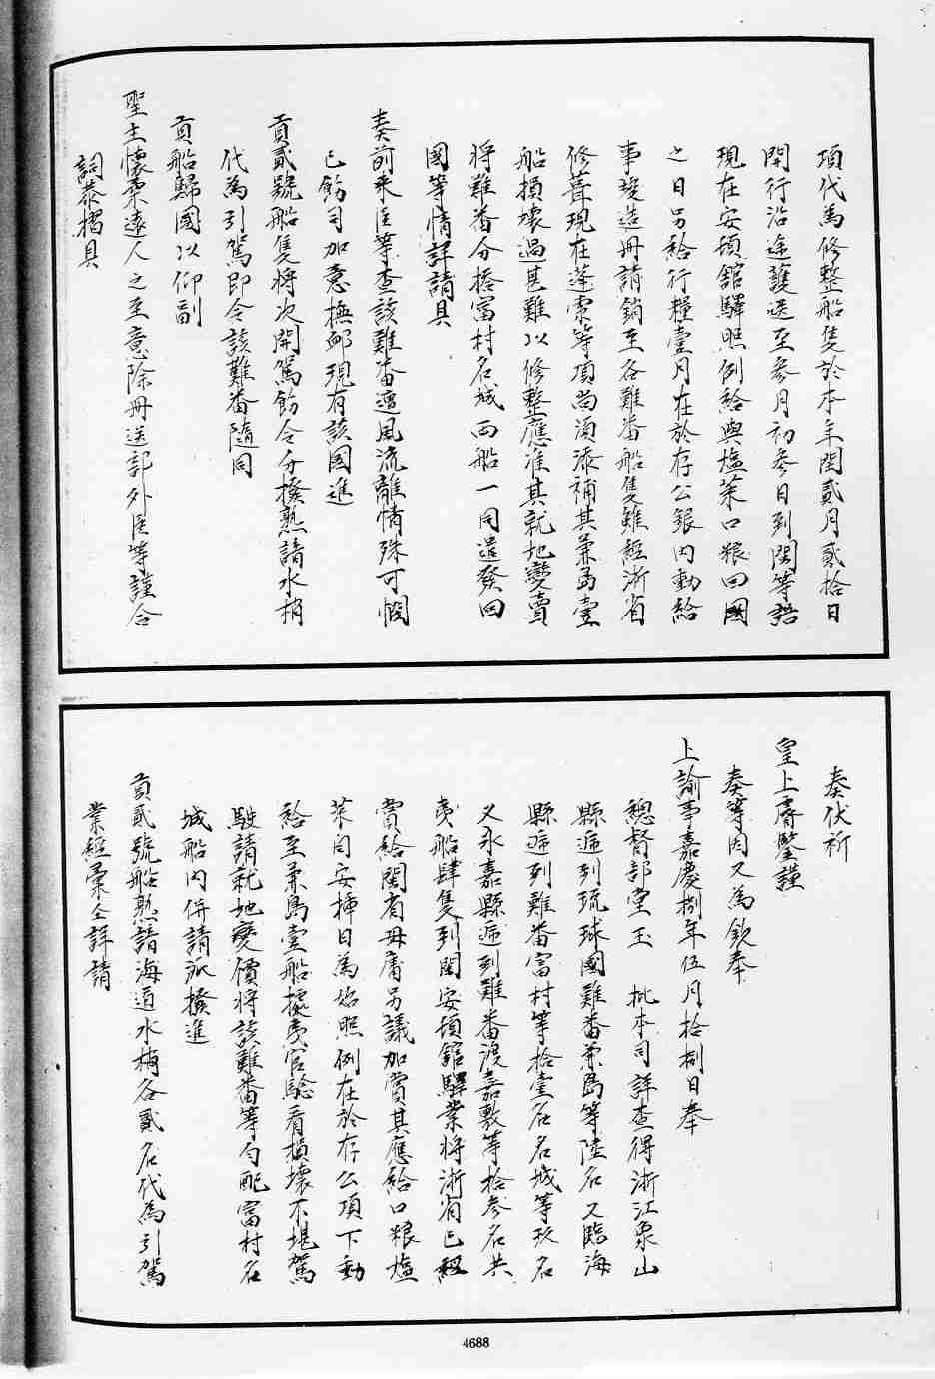 項代為修整船隻於本年閏貳月貳拾日
開行沿途護送至參月初參日到閩等語
現在安頓館驛照例給與塩菜口粮回國
之日另給行糧壹月在於存公銀內動給
事竣造冊請銷至各難番船隻雖經浙省
修葺現在蓬索等項尚須添補其兼島壹
船損壞過甚難以修整應准其就地變賣
將難番分搭富村名城兩船一同遣發回
國等情詳請具
奏前來臣等查該難番遭風流離情殊可憫
已飭司加意撫卹現有該國進
貢貳號船隻將次開駕飭令分撥熟諳水梢
代為引駕即令該難番隨同
貢船歸國以仰副
聖主懷柔遠人之至意除冊送部外臣等謹合
詞恭摺具
奏伏祈
皇上睿鑒謹
奏等因又為欽奉
上諭事嘉慶捌年伍月拾捌日奉
總督部堂玉 批本司詳查得浙江象山
縣遞到琉球國難番兼島等陸名又臨海
縣遞到難番富村等拾壹名名城等玖名
又永嘉縣遞到難番渡嘉敷等拾參名共
夷船肆隻到閩安頓館驛業將浙省已經
賞給閩省毋庸另議加賞其應給口粮塩
菜自安挿日為始照例在於存公項下動
給至兼島壹船據夷官驗看損壞不堪駕
駛請就地變價將該難番等勻配富村名
城船內併請派撥進
貢貳號船熟諳海道水梢各貳名代為引駕
業經彙全詳請
4688